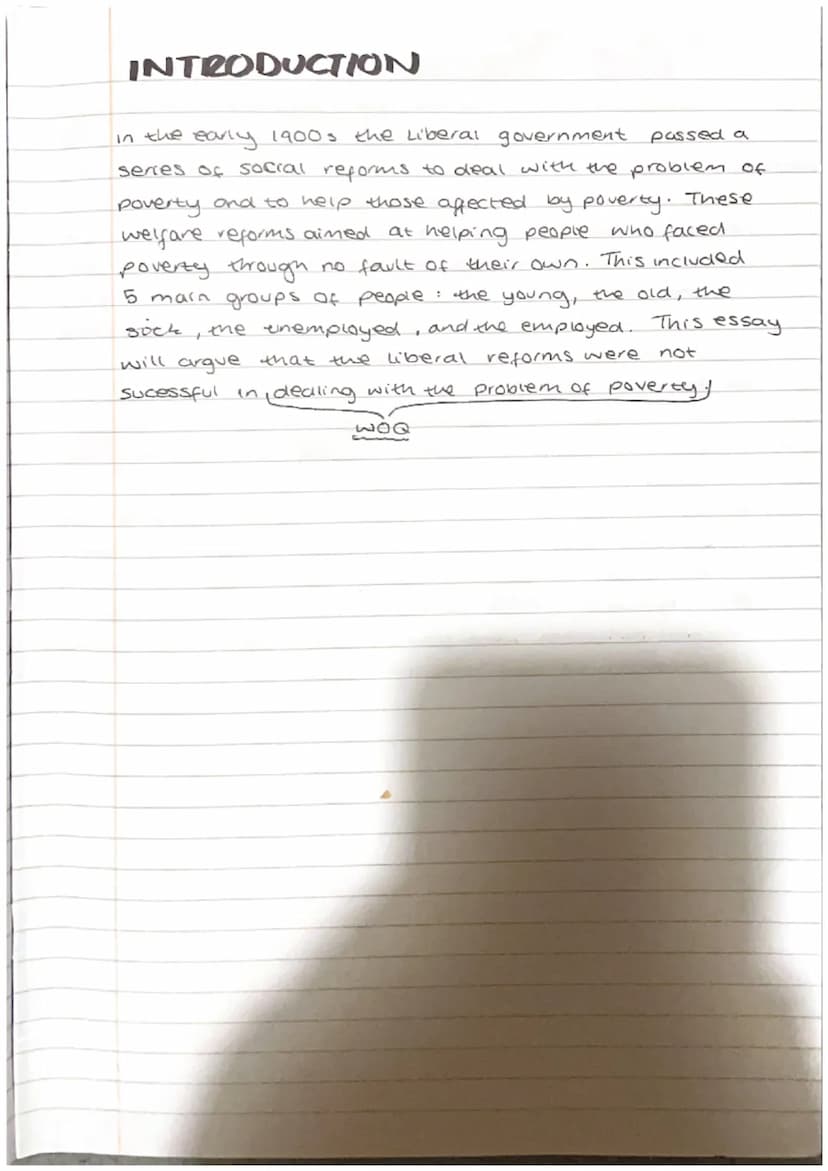 INTRODUCTION
in the early 1900s the Liberal government passed a
series of social reforms to deal with the problem of
poverty and to help those affected by poverty. These
welfare reforms aimed at helping people who faced
poverty through no fault of their own. This included
5 main groups of people : the young, the old, the
sick, the unemployed, and the employed. This essay
will argue that the liberal reforms were not
sucessful in dealing with the problem of poverty.
WOQ